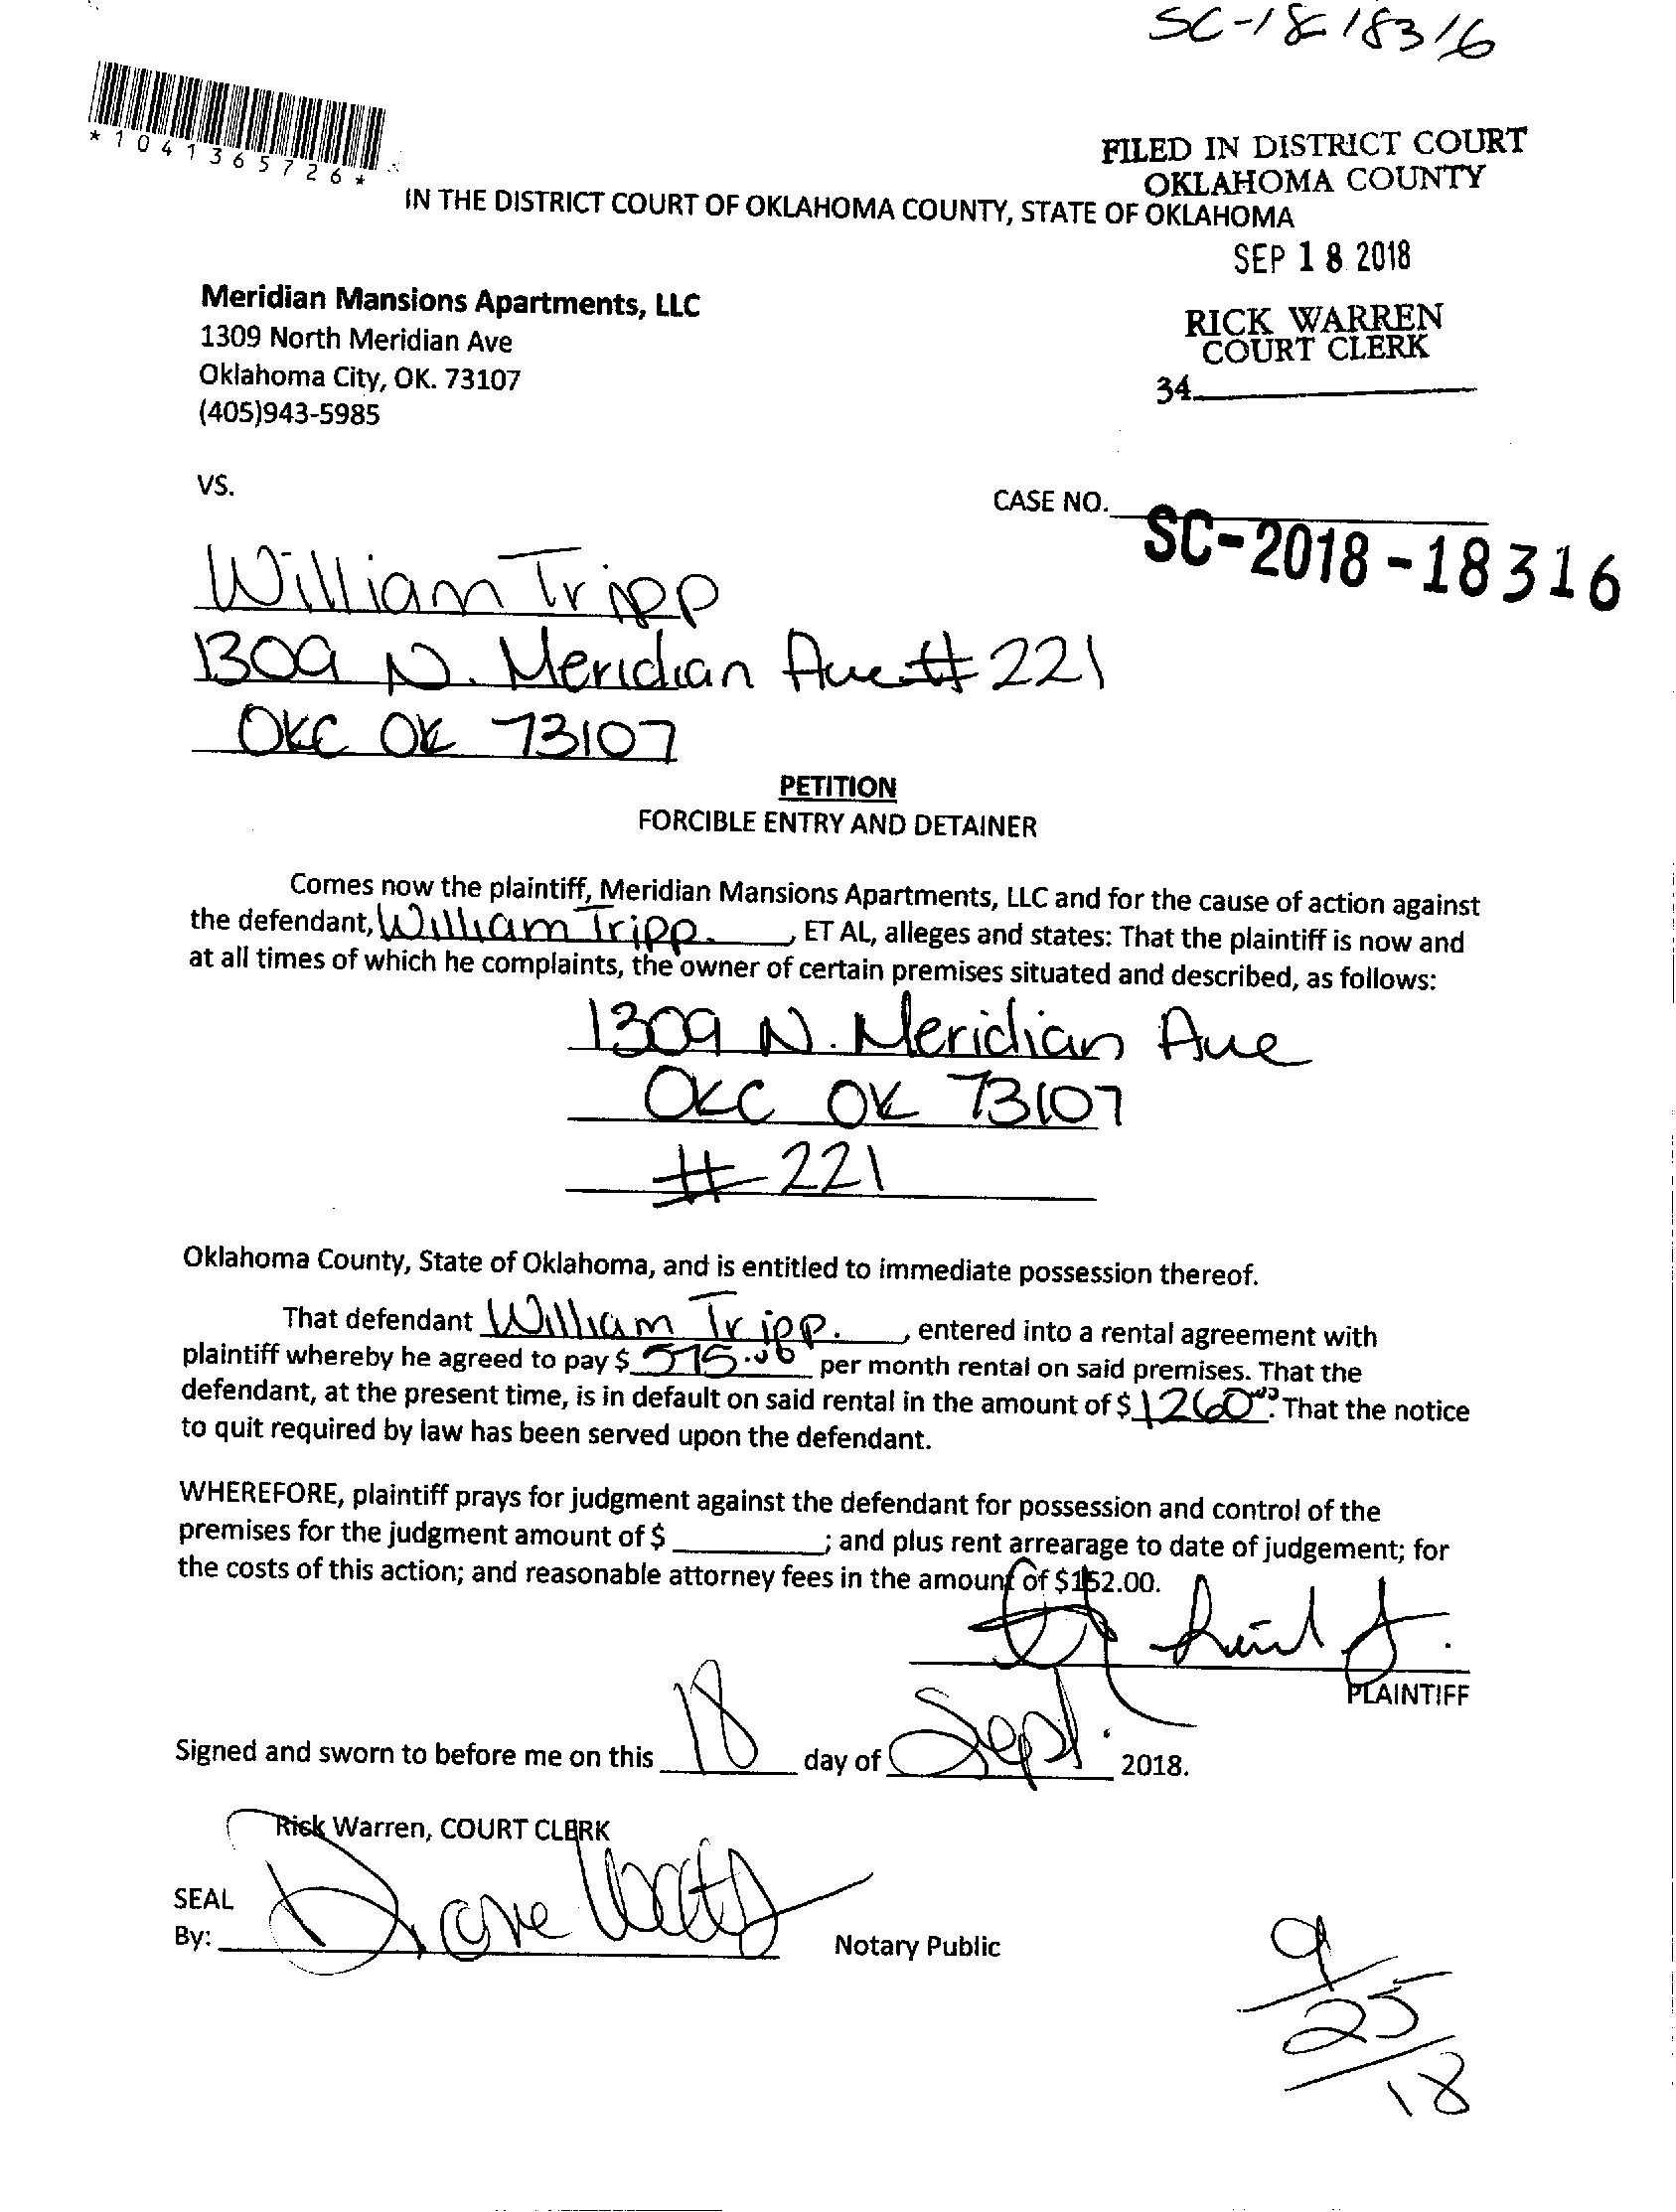 SC-18-18316
*1041365726*
FILED IN DISTRICT COURT
OKLAHOMA COUNTY
IN THE DISTRICT COURT OF OKLAHOMA COUNTY, STATE OF OKLAHOMA
SEP 18 2018
Meridian Mansions Apartments, LLC
1309 North Meridian Ave
Oklahoma City, OK. 73107
(405)943-5985
RICK WARREN
COURT CLERK
34
VS.
CASE NO.
SC-2018-18316
William Tripp
1309 N. Meridian Ave # 221
OKC OK 73107
PETITION
FORCIBLE ENTRY AND DETAINER
Comes now the plaintiff, Meridian Mansions Apartments, LLC and for the cause of action against
the defendant, William Tripp. , ET AL, alleges and states: That the plaintiff is now and
at all times of which he complaints, the owner of certain premises situated and described, as follows:
1309 N. Meridian Ave
OKC OK 73107
# 221
Oklahoma County, State of Oklahoma, and is entitled to immediate possession thereof.
That defendant William Tripp. , entered into a rental agreement with
plaintiff whereby he agreed to pay $ 575.00 per month rental on said premises. That the
defendant, at the present time, is in default on said rental in the amount of $ 1260.00. That the notice
to quit required by law has been served upon the defendant.
WHEREFORE, plaintiff prays for judgment against the defendant for possession and control of the
premises for the judgment amount of $ ; and plus rent arrearage to date of judgement; for
the costs of this action; and reasonable attorney fees in the amount of $152.00.
PLAINTIFF
Signed and sworn to before me on this 18 day of Sept. 2018.
Rick Warren, COURT CLERK
SEAL
By: Notary Public
9/25/18